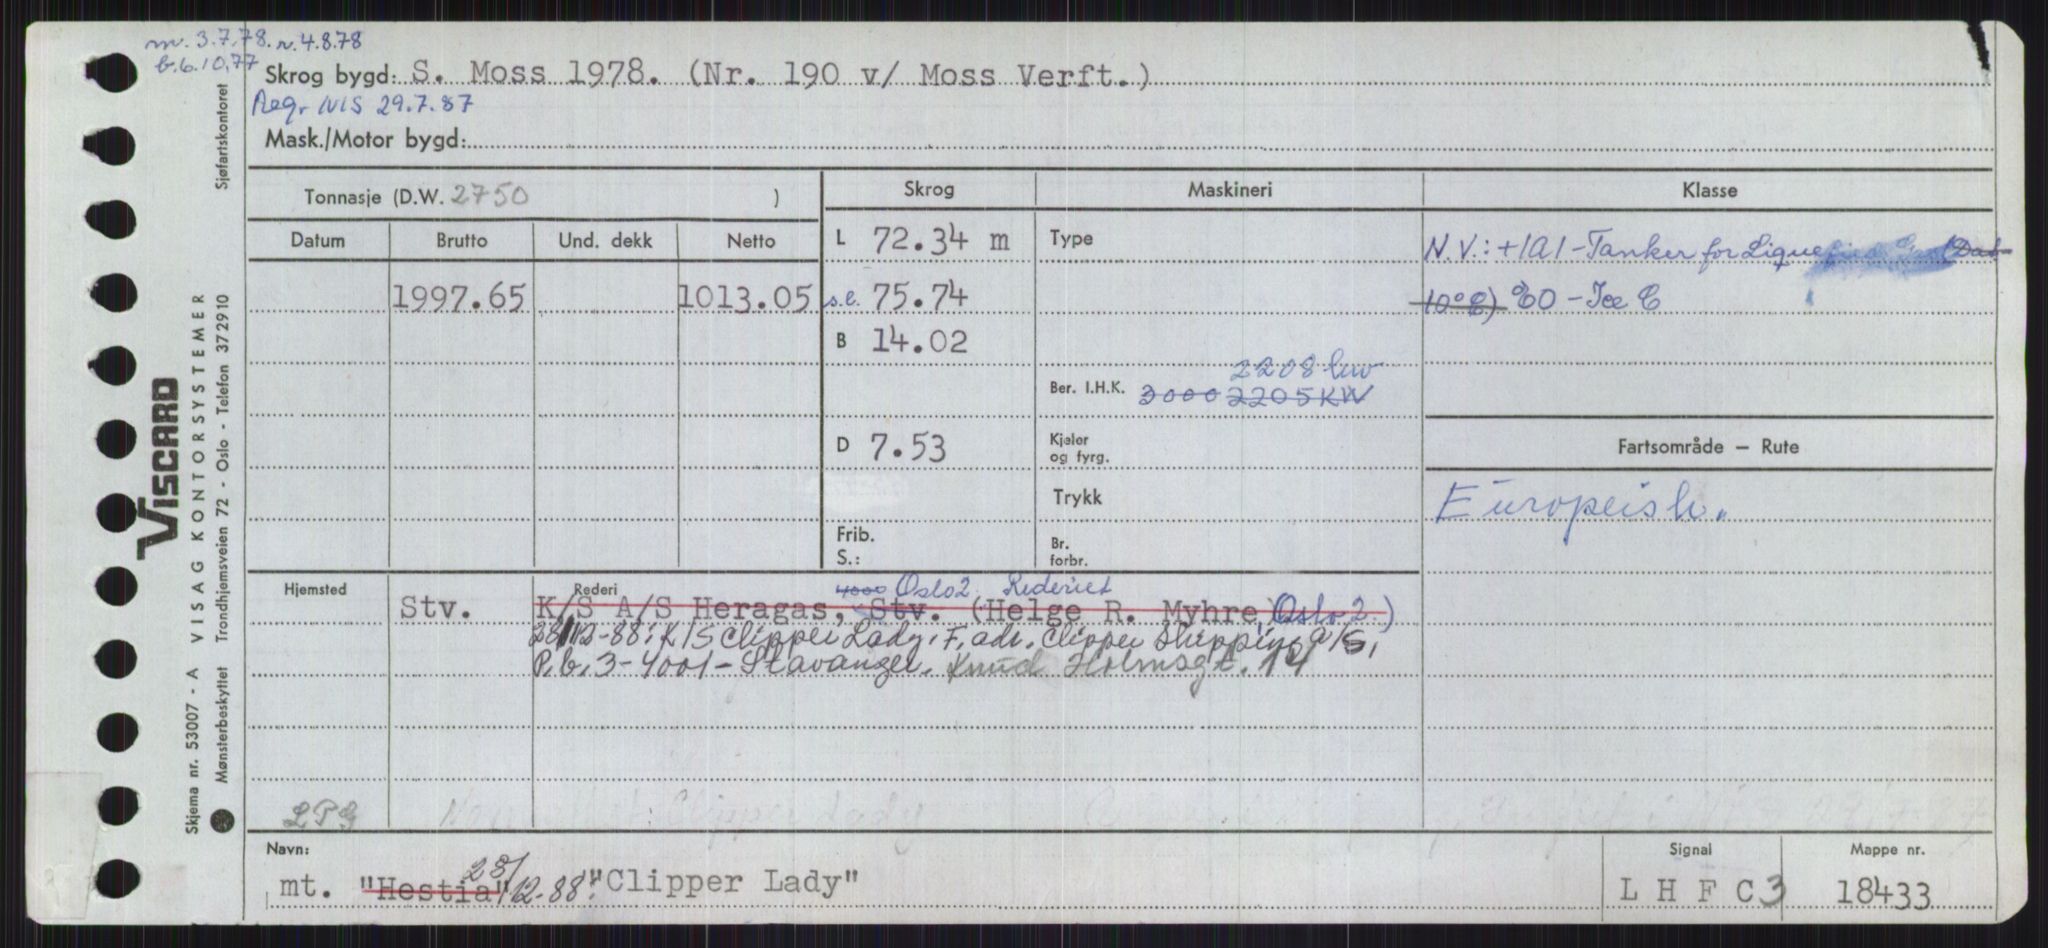 m. 3.7.78. n. 4.8.78
b. 6.10.77
Skrog bygd: S. Moss 1978. (Nr. 190 v/ Moss Verft.)
Regr NIS 29.7.87
Mask./Motor bygd:
Tonnasje (D.W. 2750 )
Skrog
Maskineri
Klasse
Datum Brutto Und. dekk Netto
L 72.34 m
Type
N.V.: +1A1 - Tanker for Liquefied Gas (Dat
1997.65 1013.05
s.l. 75.74
10°C) EO - Ice C
B 14.02
2208 kw
Ber. I.H.K. 3000 2205 KW
D 7.53
Kjeler
og fyrg.
Fartsområde — Rute
Trykk
Europeisk.
Frib.
S.:
Br.
forbr.
Hjemsted
Rederi
4000 Oslo 2 Rederiet
Stv. K/S A/S Heragas, Stv. (Helge R. Myhre, Oslo 2.)
28/12-88: K/S Clipper Lady, F. adr. Clipper Shipping A/S,
P.b. 3 - 4001 - Stavanger. Knud Holmsgt. 14
LPG
Clipper Lady
Navn:
mt. "Hestia" 28/12-88: "Clipper Lady"
Signal
L H F C 3
Mappe nr.
18433
VISCARD
Skjema nr. 53007 - A VISAG KONTORSYSTEMER
Mønsterbeskyttet Trondhjemsveien 72 - Oslo - Telefon 37 29 10 Sjøfartskontoret